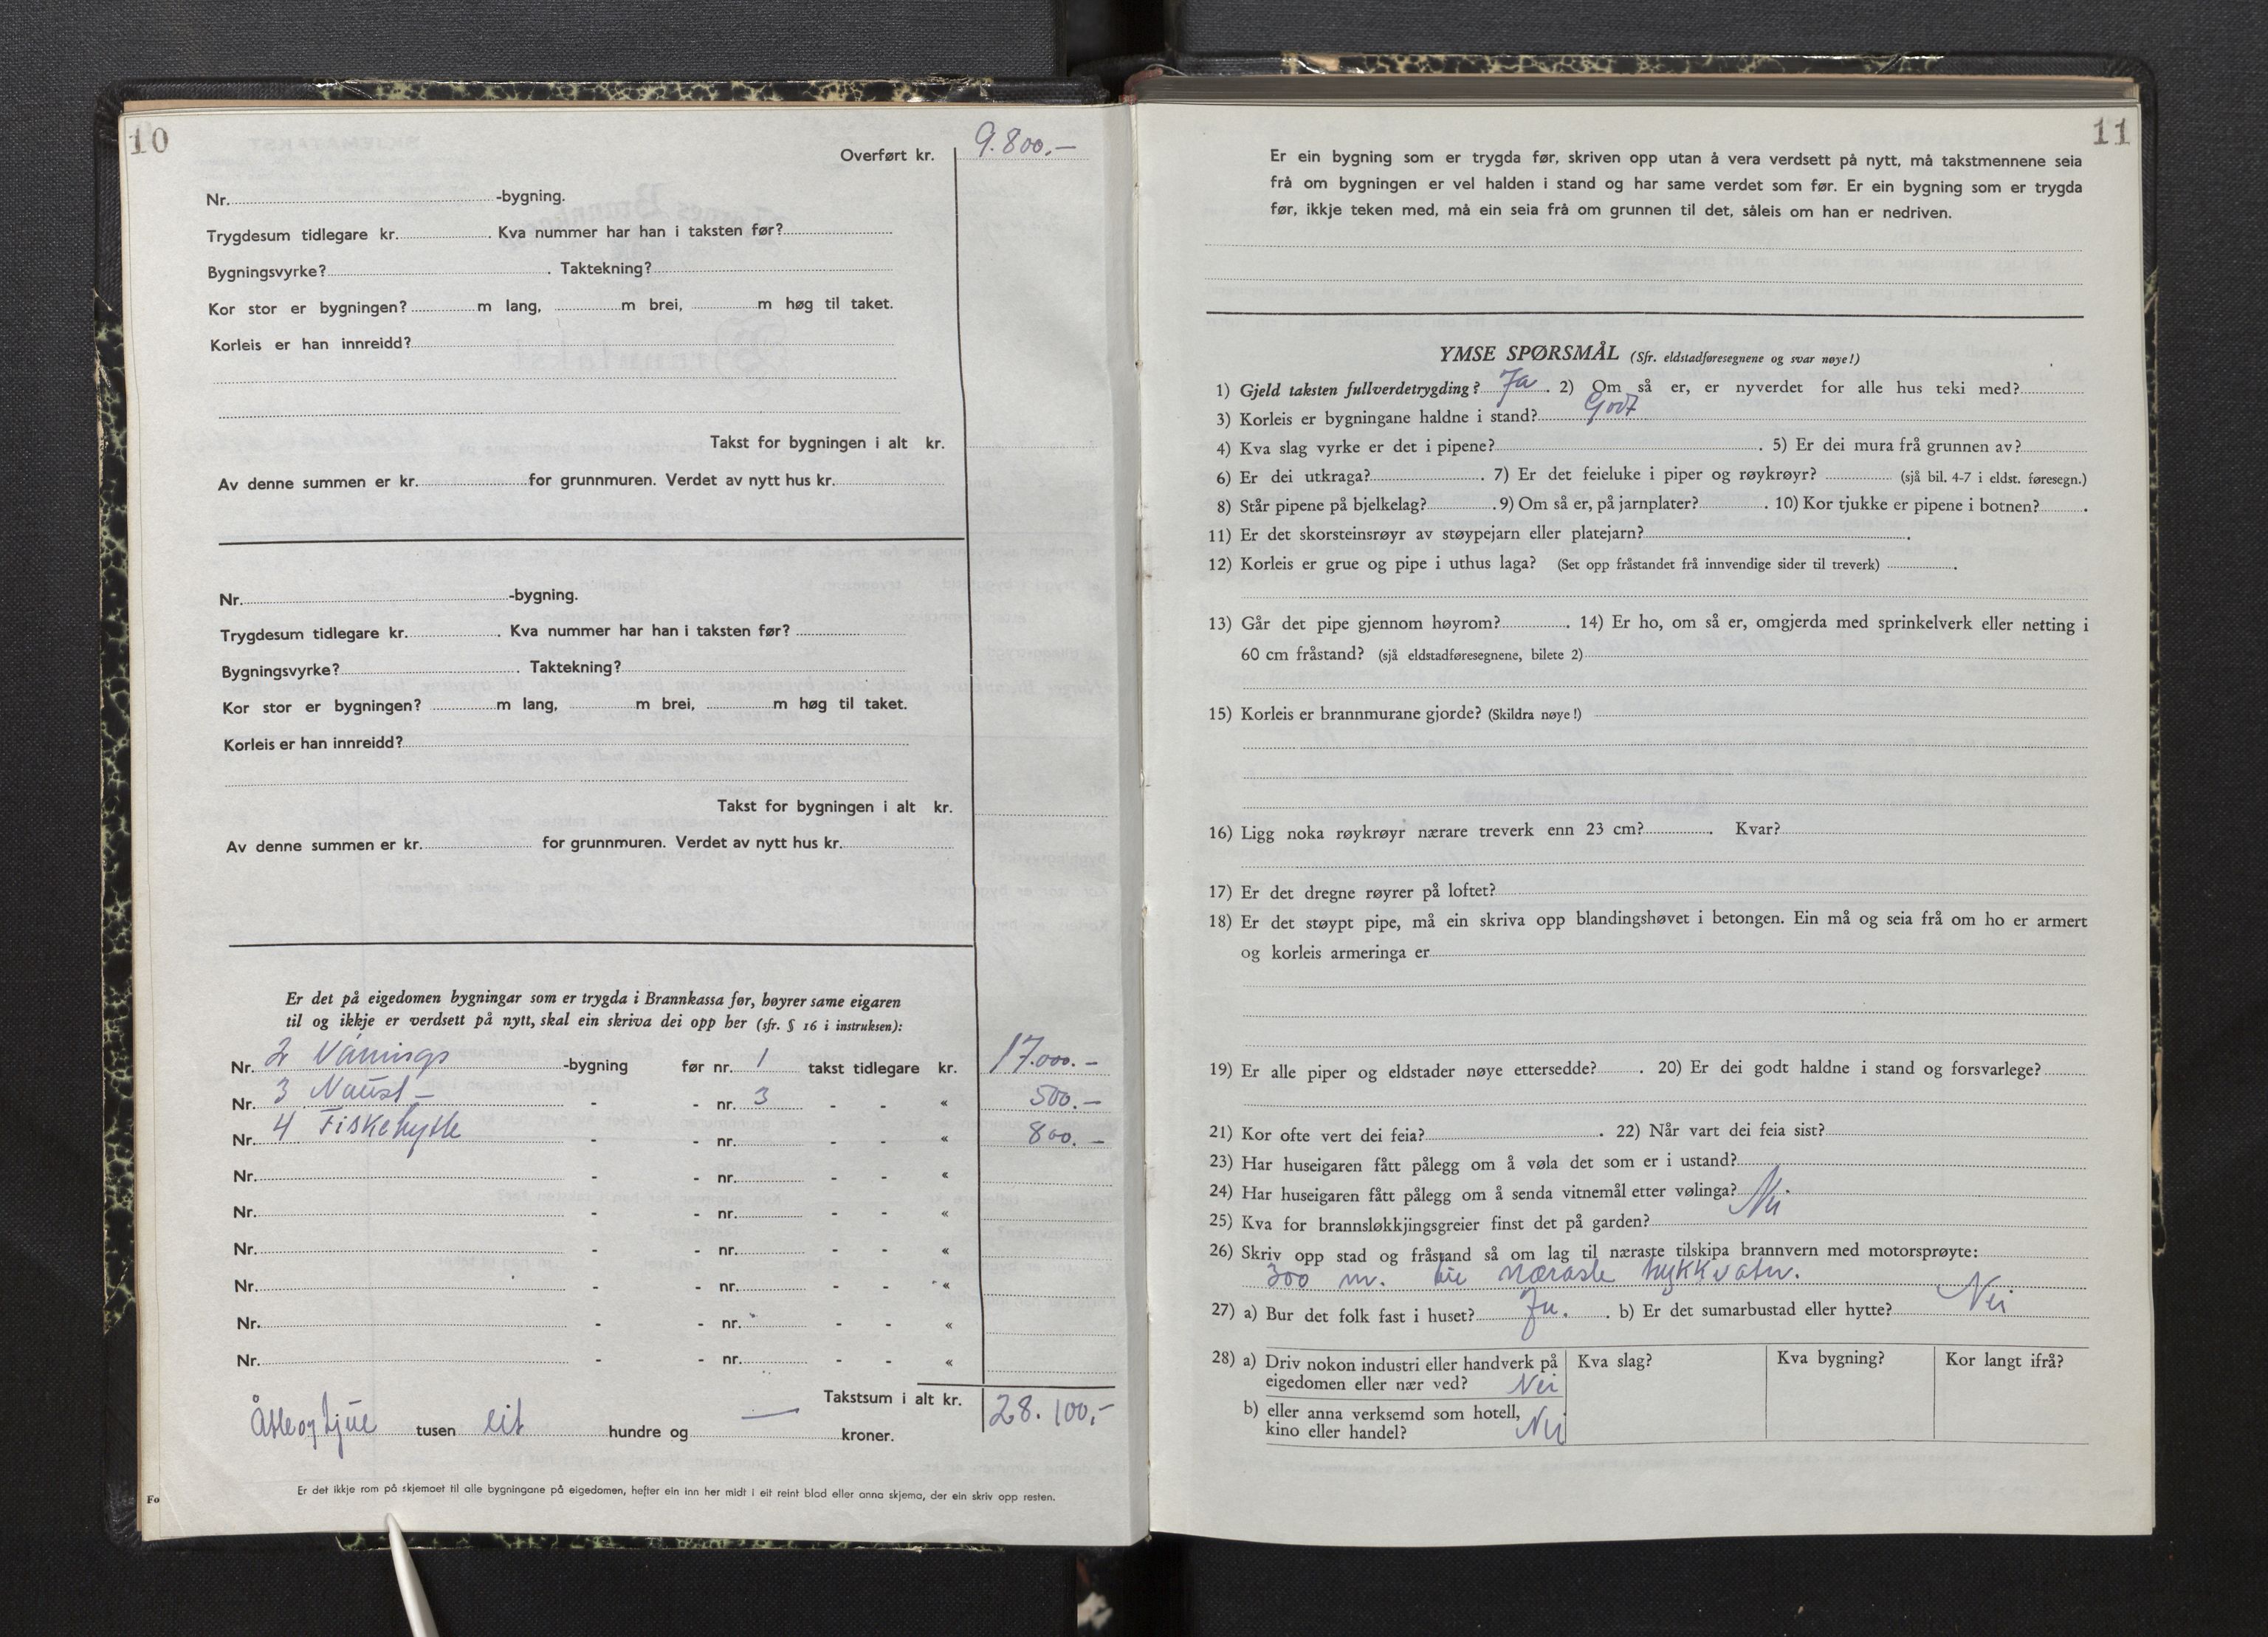 10
Overført kr. 9.800.—
Nr. -bygning.
Trygdesum tidlegare kr. . Kva nummer har han i taksten før?
Bygningsvyrke? . Taktekning?
Kor stor er bygningen? m lang, m brei, m høg til taket.
Korleis er han innreidd?
Takst for bygningen i alt kr.
Av denne summen er kr. for grunnmuren. Verdet av nytt hus kr.
Nr. -bygning.
Trygdesum tidlegare kr. . Kva nummer har han i taksten før?
Bygningsvyrke? . Taktekning?
Kor stor er bygningen? m lang, m brei, m høg til taket.
Korleis er han innreidd?
Takst for bygningen i alt kr.
Av denne summen er kr. for grunnmuren. Verdet av nytt hus kr.
Er det på eigedomen bygningar som er trygda i Brannkassa før, høyrer same eigaren
til og ikkje er verdsett på nytt, skal ein skriva dei opp her (sfr. § 16 i instruksen):
Nr. 2 Vånings -bygning før nr. 1 takst tidlegare kr. 17.000.—
Nr. 3 Naust — - - nr. 3 - - « 500.—
Nr. 4 Fiskehytte - - nr. - - « 800.—
Nr. - - nr. - - «
Nr. - - nr. - - «
Nr. - - nr. - - «
Nr. - - nr. - - «
Nr. - - nr. - - «
Nr. - - nr. - - «
Takstsum i alt kr. 28.100,-
Åtteogtjue tusen eit hundre og — kroner.
Er det ikkje rom på skjemaet til alle bygningane på eigedomen, hefter ein inn her midt i eit reint blad eller anna skjema, der ein skriv opp resten.
Fo
11
Er ein bygning som er trygda før, skriven opp utan å vera verdsett på nytt, må takstmennene seia
frå om bygningen er vel halden i stand og har same verdet som før. Er ein bygning som er trygda
før, ikkje teken med, må ein seia frå om grunnen til det, såleis om han er nedriven.
YMSE SPØRSMÅL (Sfr. eldstadføresegnene og svar nøye!)
1) Gjeld taksten fullverdetrygding? Ja . 2) Om så er, er nyverdet for alle hus teki med?
3) Korleis er bygningane haldne i stand? Godt
4) Kva slag vyrke er det i pipene? . 5) Er dei mura frå grunnen av?
6) Er dei utkraga? . 7) Er det feieluke i piper og røykrøyr? (sjå bil. 4-7 i eldst. føresegn.)
8) Står pipene på bjelkelag? . 9) Om så er, på jarnplater? . 10) Kor tjukke er pipene i botnen? .
11) Er det skorsteinsrøyr av støypejarn eller platejarn? .
12) Korleis er grue og pipe i uthus laga? (Set opp fråstandet frå innvendige sider til treverk) .
13) Går det pipe gjennom høyrom? . 14) Er ho, om så er, omgjerda med sprinkelverk eller netting i
60 cm fråstand? (sjå eldstadføresegnene, bilete 2)
15) Korleis er brannmurane gjorde? (Skildra nøye!)
16) Ligg noka røykrøyr nærare treverk enn 23 cm? . Kvar?
17) Er det dregne røyrer på loftet?
18) Er det støypt pipe, må ein skriva opp blandingshøvet i betongen. Ein må og seia frå om ho er armert
og korleis armeringa er
19) Er alle piper og eldstader nøye ettersedde? . 20) Er dei godt haldne i stand og forsvarlege?
21) Kor ofte vert dei feia? . 22) Når vart dei feia sist?
23) Har huseigaren fått pålegg om å vøla det som er i ustand?
24) Har huseigaren fått pålegg om å senda vitnemål etter vølinga? Nei
25) Kva for brannsløkkjingsgreier finst det på garden?
26) Skriv opp stad og fråstand så om lag til næraste tilskipa brannvern med motorsprøyte:
300 m. til næraste trykkvatn.
27) a) Bur det folk fast i huset? Ja. . b) Er det sumarbustad eller hytte? Nei
28) a) Driv nokon industri eller handverk på Kva slag? Kva bygning? Kor langt ifrå?
eigedomen eller nær ved? Nei
b) eller anna verksemd som hotell,
kino eller handel? Nei